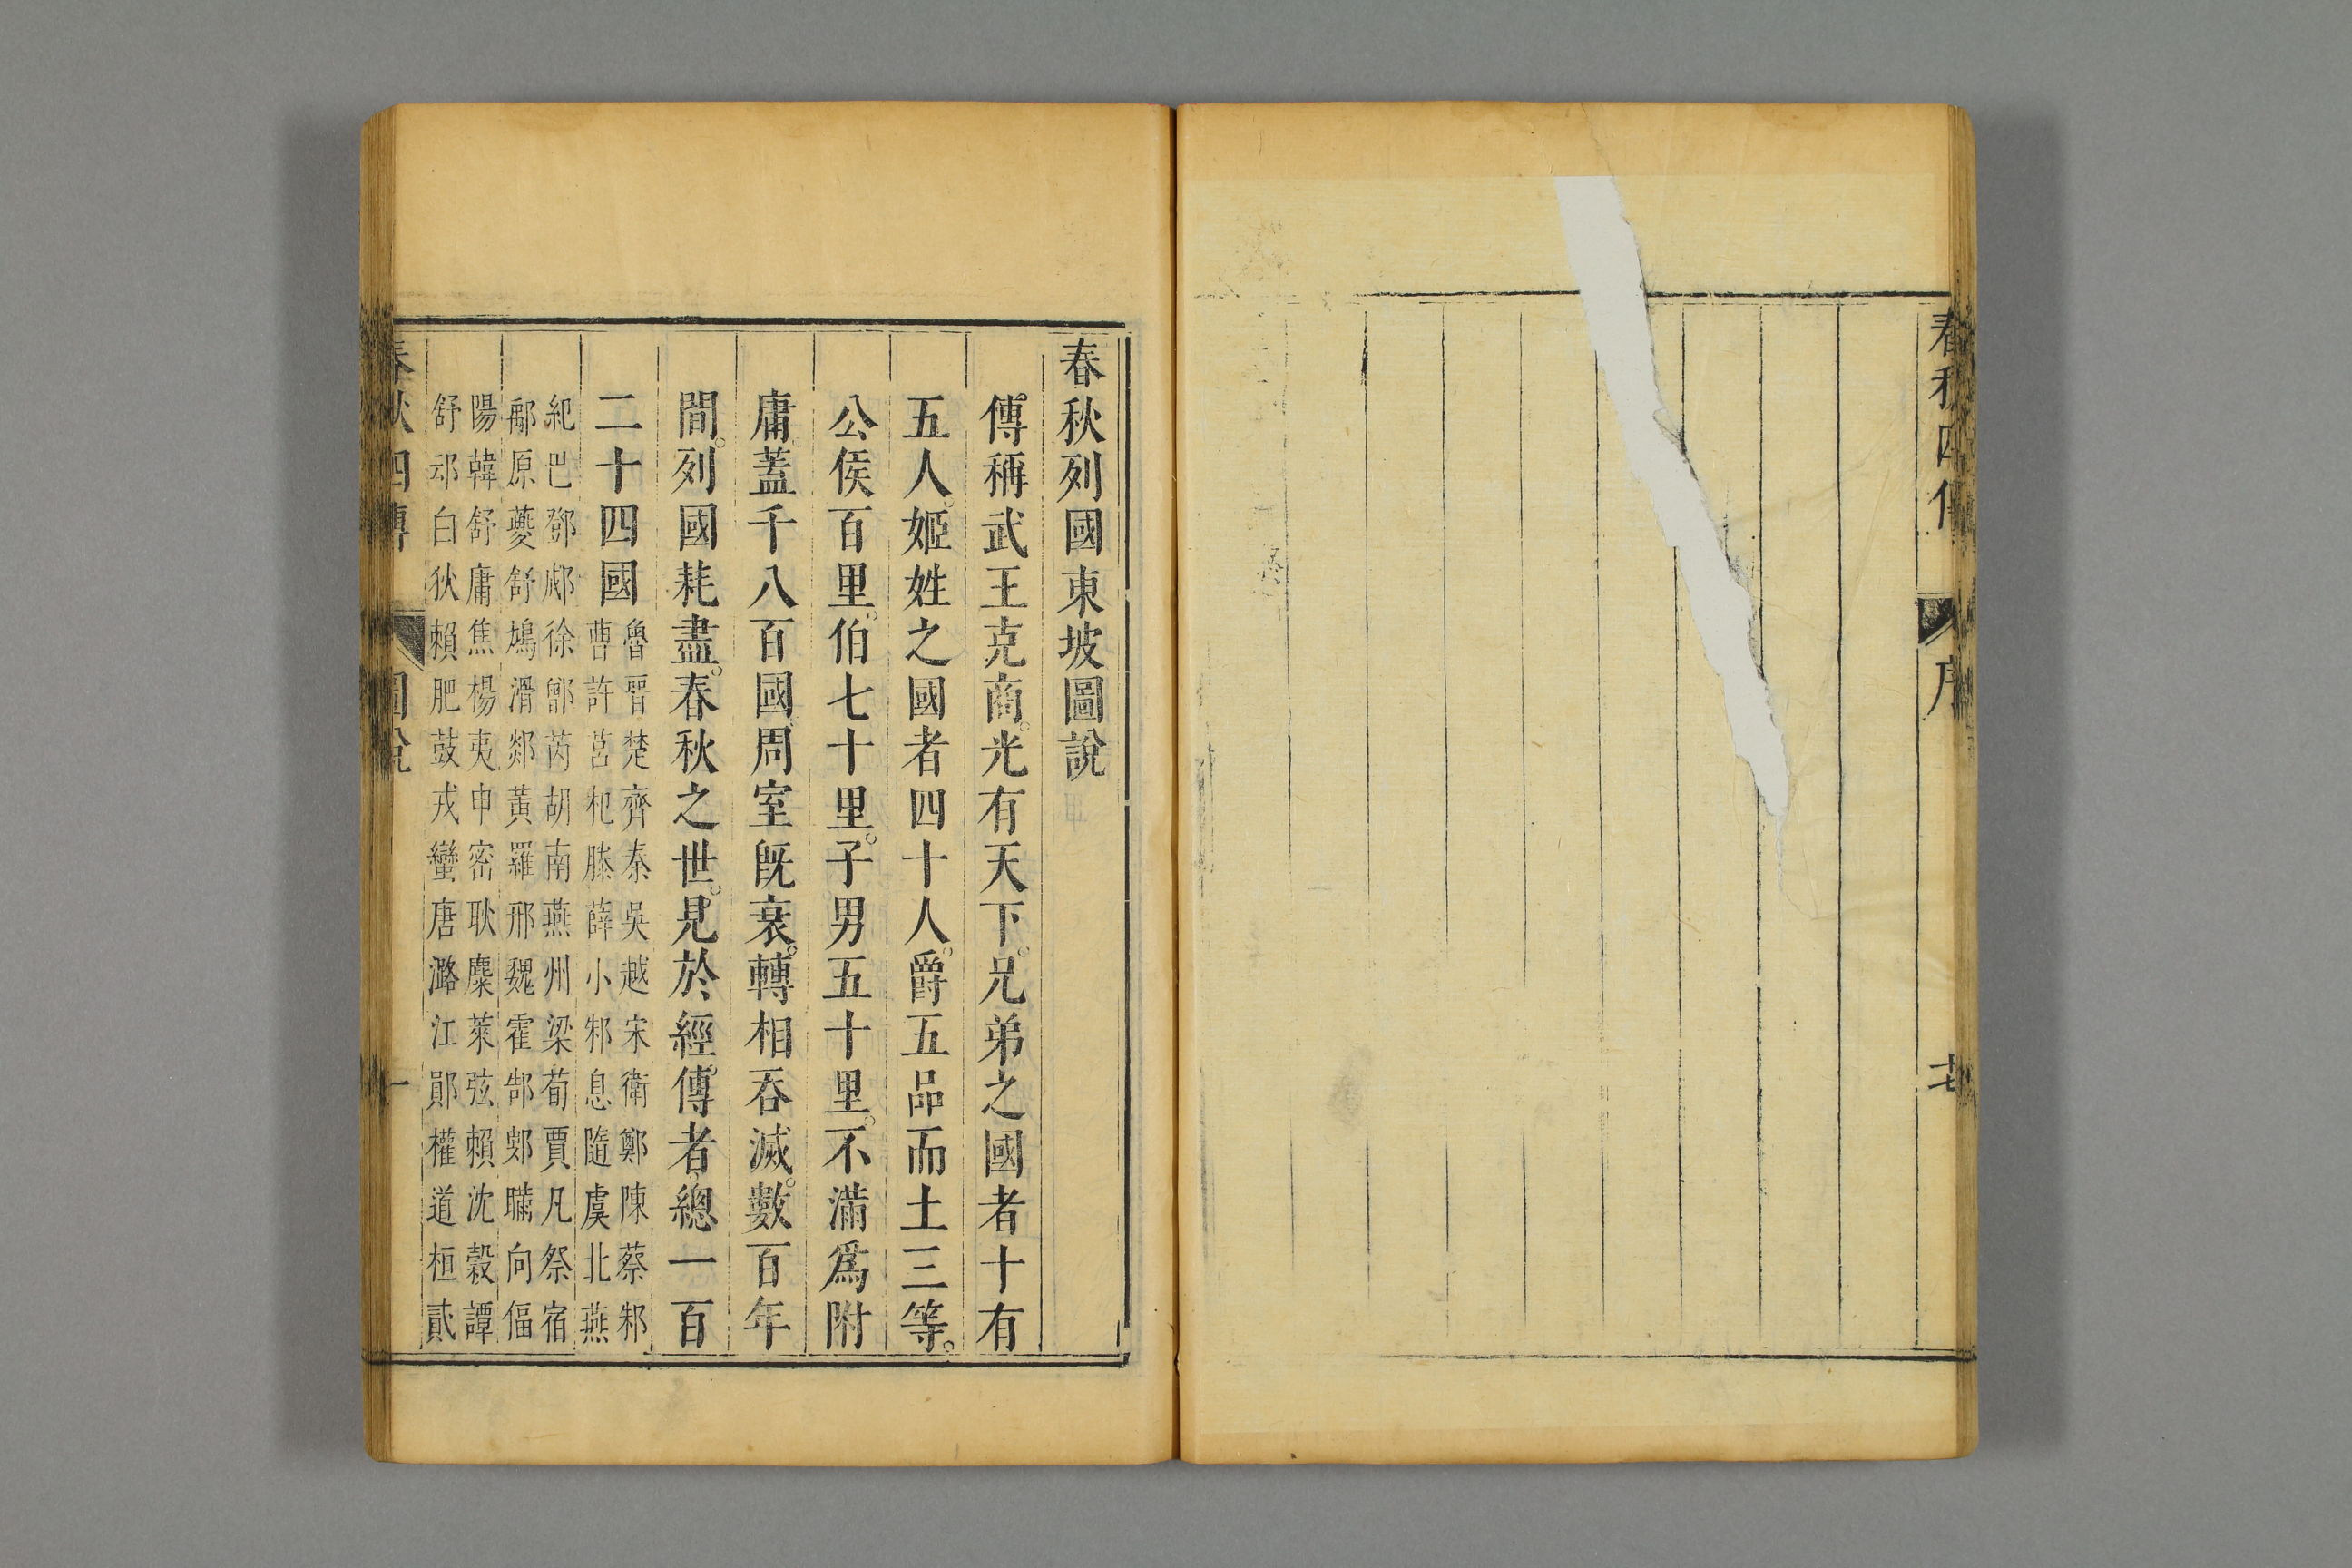 春秋四傳 序 七
春秋列國東坡圖說
傳稱武王克商。光有天下。兄弟之國者十有
五人。姬姓之國者四十人。爵五品而土三等。
公侯百里。伯七十里。子男五十里。不滿爲附
庸。蓋千八百國。周室旣衰。轉相吞滅。數百年
間。列國耗盡。春秋之世。見於經傳者。總一百
二十四國
魯晉楚齊秦吳越宋衛鄭陳蔡邾
曹許莒杞滕薛小邾息隨虞北燕
紀巴鄧郕徐鄫芮胡南燕州梁荀賈凡祭宿
鄅原夔舒鳩滑郯黃羅邢魏霍郜鄋瞞向偪
陽韓舒庸焦楊夷申密耿麋萊弦賴沈穀譚
舒邛白狄賴肥鼓戎蠻唐潞江鄖權道桓貳
春秋四傳 圖說 一